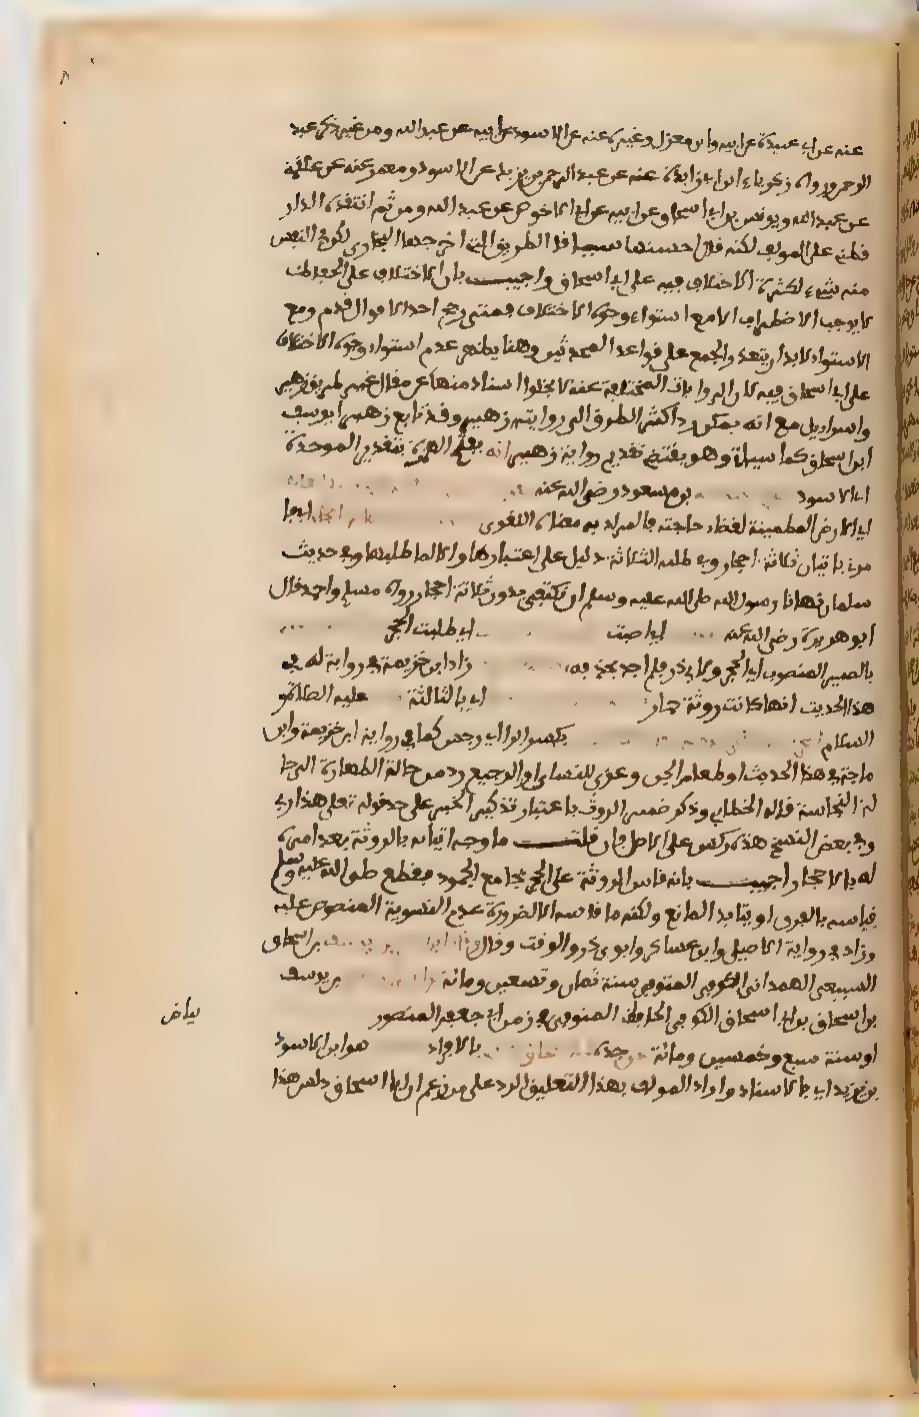 عنه عن ابي عبيدة عن ابيه وابن مغول وغيره عنه عن الاسود عن ابيه عن عبد الله ومن غير ذكر عبد
الرحمن ورواه زكرياء ابن ابي زايدة عنه عن عبد الرحمن بن يزيد عن الاسود ومعمر عنه عن علقمة
عن عبد الله ويونس بن ابي اسحاق عن ابيه عن ابي الاحوص عن عبد الله ومن ثم انتقده الدار
قطني على المولف لكنه قال احسنها سياقا الطريق التي اخرجها البخاري لكن في النفس
منه شيء لكثرة الاختلاف فيه على ابي اسحاق واجيب بان الاختلاف على الحفاظ
لا يوجب الاضطراب الا مع استواء وجوه الاختلاف فمتى رجح احد الاقوال قدم ومع
الاستواء لا بد ان يتعذر الجمع على قواعد المحدثين وهنا يظهر عدم استواء وجوه الاختلاف
على ابي اسحاق فيه لان الروايات المختلفة عنه لا يخلوا اسناد منها عن مقال غير طريق زهير
واسراييل مع انه يمكن رد اكثر الطرق الى رواية زهير وقد تابع زهير ابو يوسف
ابن اسحاق كما سياتي وهو يقتضي تقديم رواية زهير انه بفتح الهمزة بتقدير الموحدة
ابن الاسود بن مسعود رضي الله عنه
اي الارض المطمينة لقضاء حاجته فالمراد به معناه اللغوي
مرني باتيان ثلاثة احجار وفي طلبه الثلاثة دليل على اعتبارها والا لما طلبها وفي حديث
سلمان نهانا رسول الله صلى الله عليه وسلم ان نكتفي بدون ثلاثة احجار رواه مسلم واحمد قال
ابو هريرة رضي الله عنه اي اصبت اي طلبت الحجر
بالضمير المنصوب اي الحجر ولابي ذر فلم اجد بحذفه زاد ابن خزيمة في رواية له في
هذا الحديث انها كانت روثة حمار اي بالثالثة عليه الصلاة و
السلام بكسر الراء اي رجس كما في رواية ابن خزيمة وابن
ماجة في هذا الحديث او طعام الجن وعزي للنساي او الرجيع رد من حالة الطهارة الى حا
لة النجاسة قاله الخطابي وذكر ضمير الروث باعتبار تذكير الخبر على حد قوله تعلى هذا ربي
وفي بعض النسخ هذه ركس على الاصل فان قلت ما وجه اتيانه بالروثة بعد امره
له بالاحجار اجيب بانه قاس الروثة على الحجر بجامع الجمود فقطع صلى الله عليه وسلم
قياسه بالفرق او بابداء المانع ولكنه ما قاسه الا لضرورة عدم المنصوص عليه
وزاد في رواية الاصيلي وابن عساكر وابوي ذر والوقت وقال بن اسحاق
السبيعي الهمداني الكوفي المتوفى سنة ثمان وتسعين ومائة بن يوسف
بن اسحاق بن ابي اسحاق الكوفي الحافظ المتوفى في زمن ابي جعفر المنصور
بياض
او سنة سبع وخمسين ومائة بالافراد هو ابن الاسود
بن يزيد اي بالاسناد واراد المولف بهذا التعليق الرد على من زعم ان ابا اسحاق دلس هذا